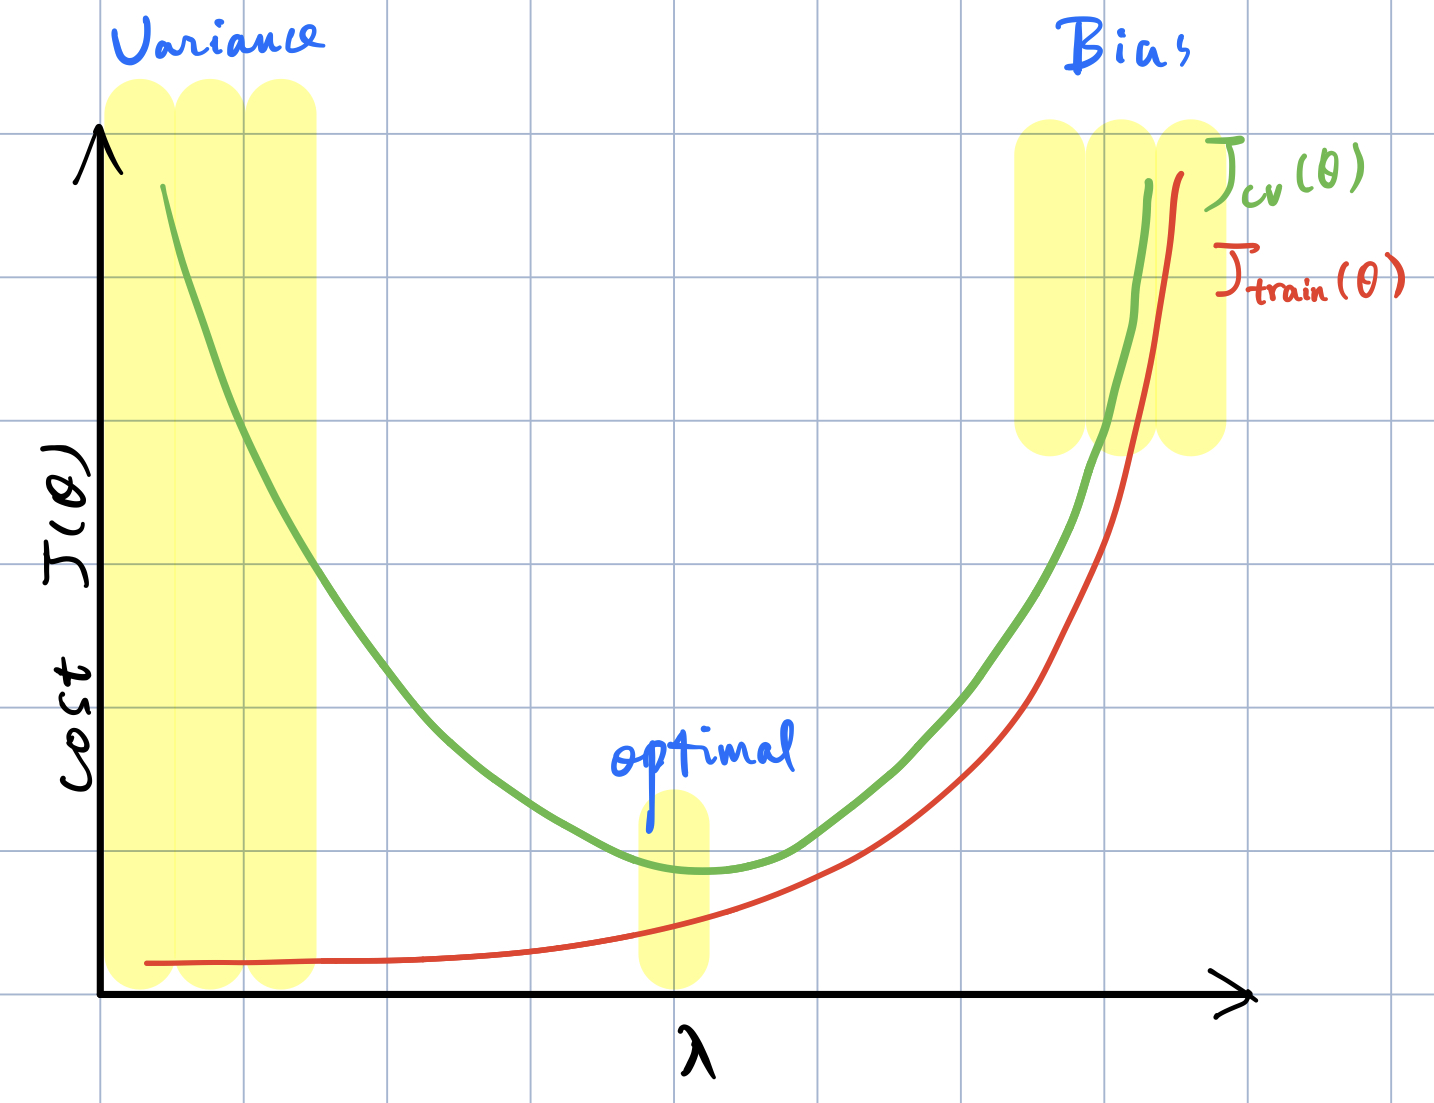 Variance
Bias
Jcv(θ)
Jtrain(θ)
cost J(θ)
optimal
λ